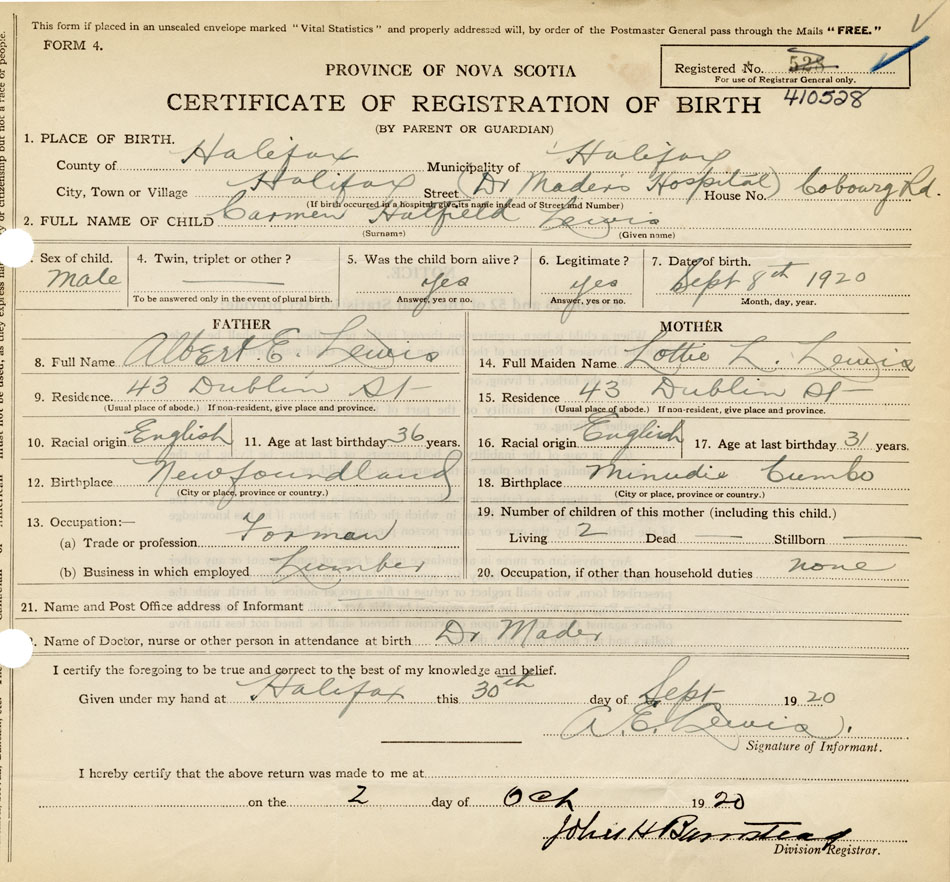 This form if placed in an unsealed envelope marked "Vital Statistics" and properly addressed will, by order of the Postmaster General pass through the Mails "FREE."
FORM 4.
Registered No. 528
For use of Registrar General only.
410528
PROVINCE OF NOVA SCOTIA
CERTIFICATE OF REGISTRATION OF BIRTH
(BY PARENT OR GUARDIAN)
1. PLACE OF BIRTH.
County of Halifax Municipality of Halifax
City, Town or Village Halifax Street (Dr Mader's Hospital) House No. Cobourg Rd.
(If birth occurred in a hospital give its name instead of Street and Number)
2. FULL NAME OF CHILD Carmen Hatfield Lewis
(Surname) (Given name)
Sex of child. Male
4. Twin, triplet or other ?
To be answered only in the event of plural birth.
5. Was the child born alive ? Yes
Answer, yes or no.
6. Legitimate ? Yes
Answer, yes or no.
7. Date of birth. Sept 8th 1920
Month, day, year.
FATHER
8. Full Name Albert. E. Lewis
9. Residence. 43 Dublin St
(Usual place of abode.) If non-resident, give place and province.
10. Racial origin English 11. Age at last birthday 36 years.
12. Birthplace Newfoundland
(City or place, province or country.)
13. Occupation:—
(a) Trade or profession. Forman
(b) Business in which employed Lumber
MOTHER
14. Full Maiden Name Lottie L. Lewis
15. Residence 43 Dublin St
(Usual place of abode.) If non-resident, give place and province.
16. Racial origin English 17. Age at last birthday 31 years.
18. Birthplace Minudie Cumbo
(City or place, province or country.)
19. Number of children of this mother (including this child.)
Living 2 Dead Stillborn
20. Occupation, if other than household duties none
21. Name and Post Office address of Informant
Name of Doctor, nurse or other person in attendance at birth Dr Mader
I certify the foregoing to be true and correct to the best of my knowledge and belief.
Given under my hand at Halifax this 30th day of Sept 1920
A. E. Lewis.
Signature of Informant.
I hereby certify that the above return was made to me at
on the 2 day of Oct 1920
John H Barnstead
Division Registrar.